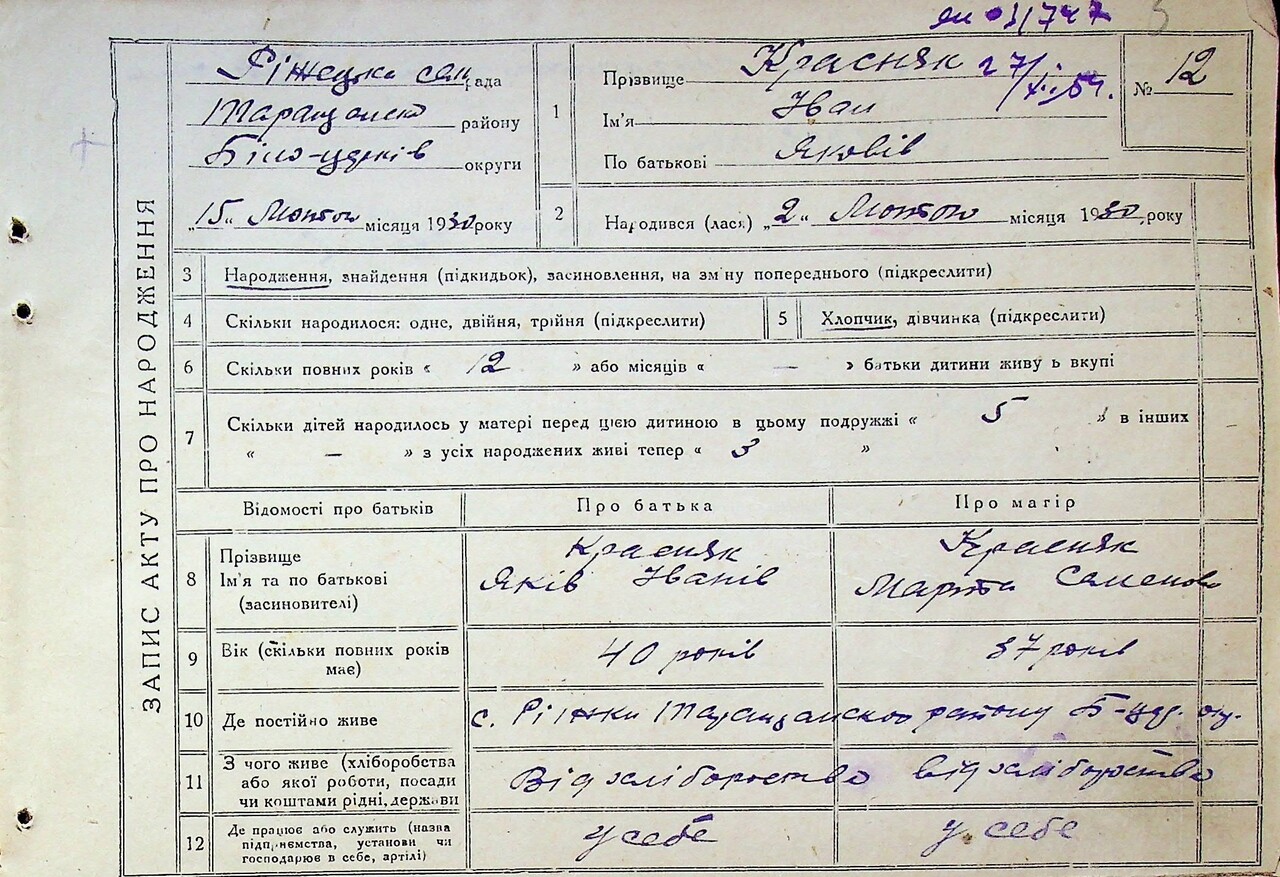 ЗАПИС АКТУ ПРО НАРОДЖЕННЯ
Ріжецка сел рада
Таращанско району
Біло-церків округи
„15“ Лютого місяця 1930 року
1
Прізвище Красняк
Ім'я Іван
По батькові Яковів
№ 12
2
Народився (лася) „2“ Лютого місяця 1930 року
3 Народження, знайдення (підкидьок), засиновлення, на зм'ну попереднього (підкреслити)
4 Скільки народилося: одне, двійня, трійня (підкреслити)
5 Хлопчик, дівчинка (підкреслити)
6 Скільки повних років « 12 » або місяців « — » батьки дитини живу ь вкупі
7 Скільки дітей народилось у матері перед цією дитиною в цьому подружжі « 5 » в інших
« — » з усіх народжених живі тепер « 3 »
Відомості про батьків Про батька Про матір
8 Прізвище Красняк Красняк
Ім'я та по батькові Яків Іванів Марта Семенова
(засиновителі)
9 Вік (скільки повних років 40 років 37 років
має)
10 Де постійно живе с. Ріжки Таращанского району Б-црк. окр.
11 З чого живе (хліборобства
або якої роботи, посади Від хліборотва від хліборства
чи коштами рідні, держави
12 Де працює або служить (назва
підприємства, установи чи у себе у себе
господарює в себе, артілі)